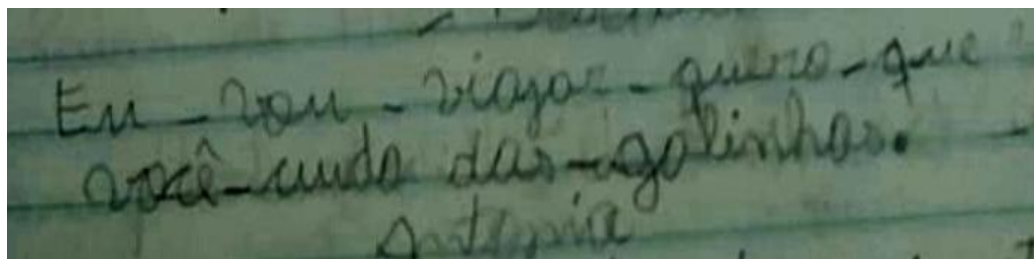 Eu - vou - viajar - quero - que
você - cuida das - galinhas.
Antonia